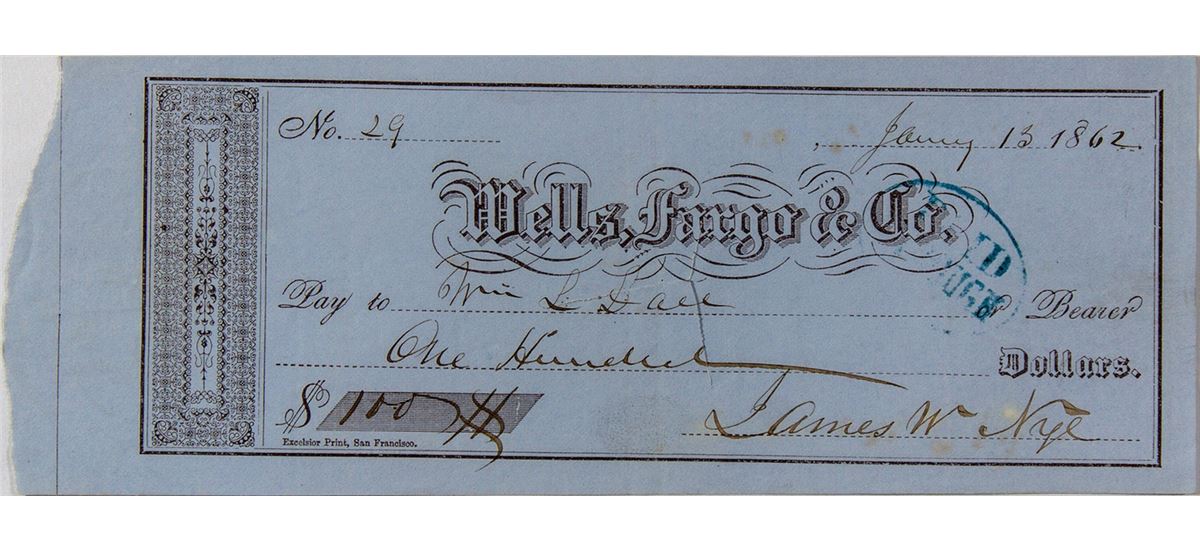 No. 29
, Jany 13 1862
Wells, Fargo & Co.
Pay to Wm L Dall or Bearer
One Hundred Dollars.
$ 100
James W Nye
Excelsior Print, San Francisco.